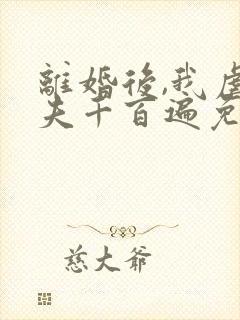 離婚後,我虐
夫千百遍免
慈大爺